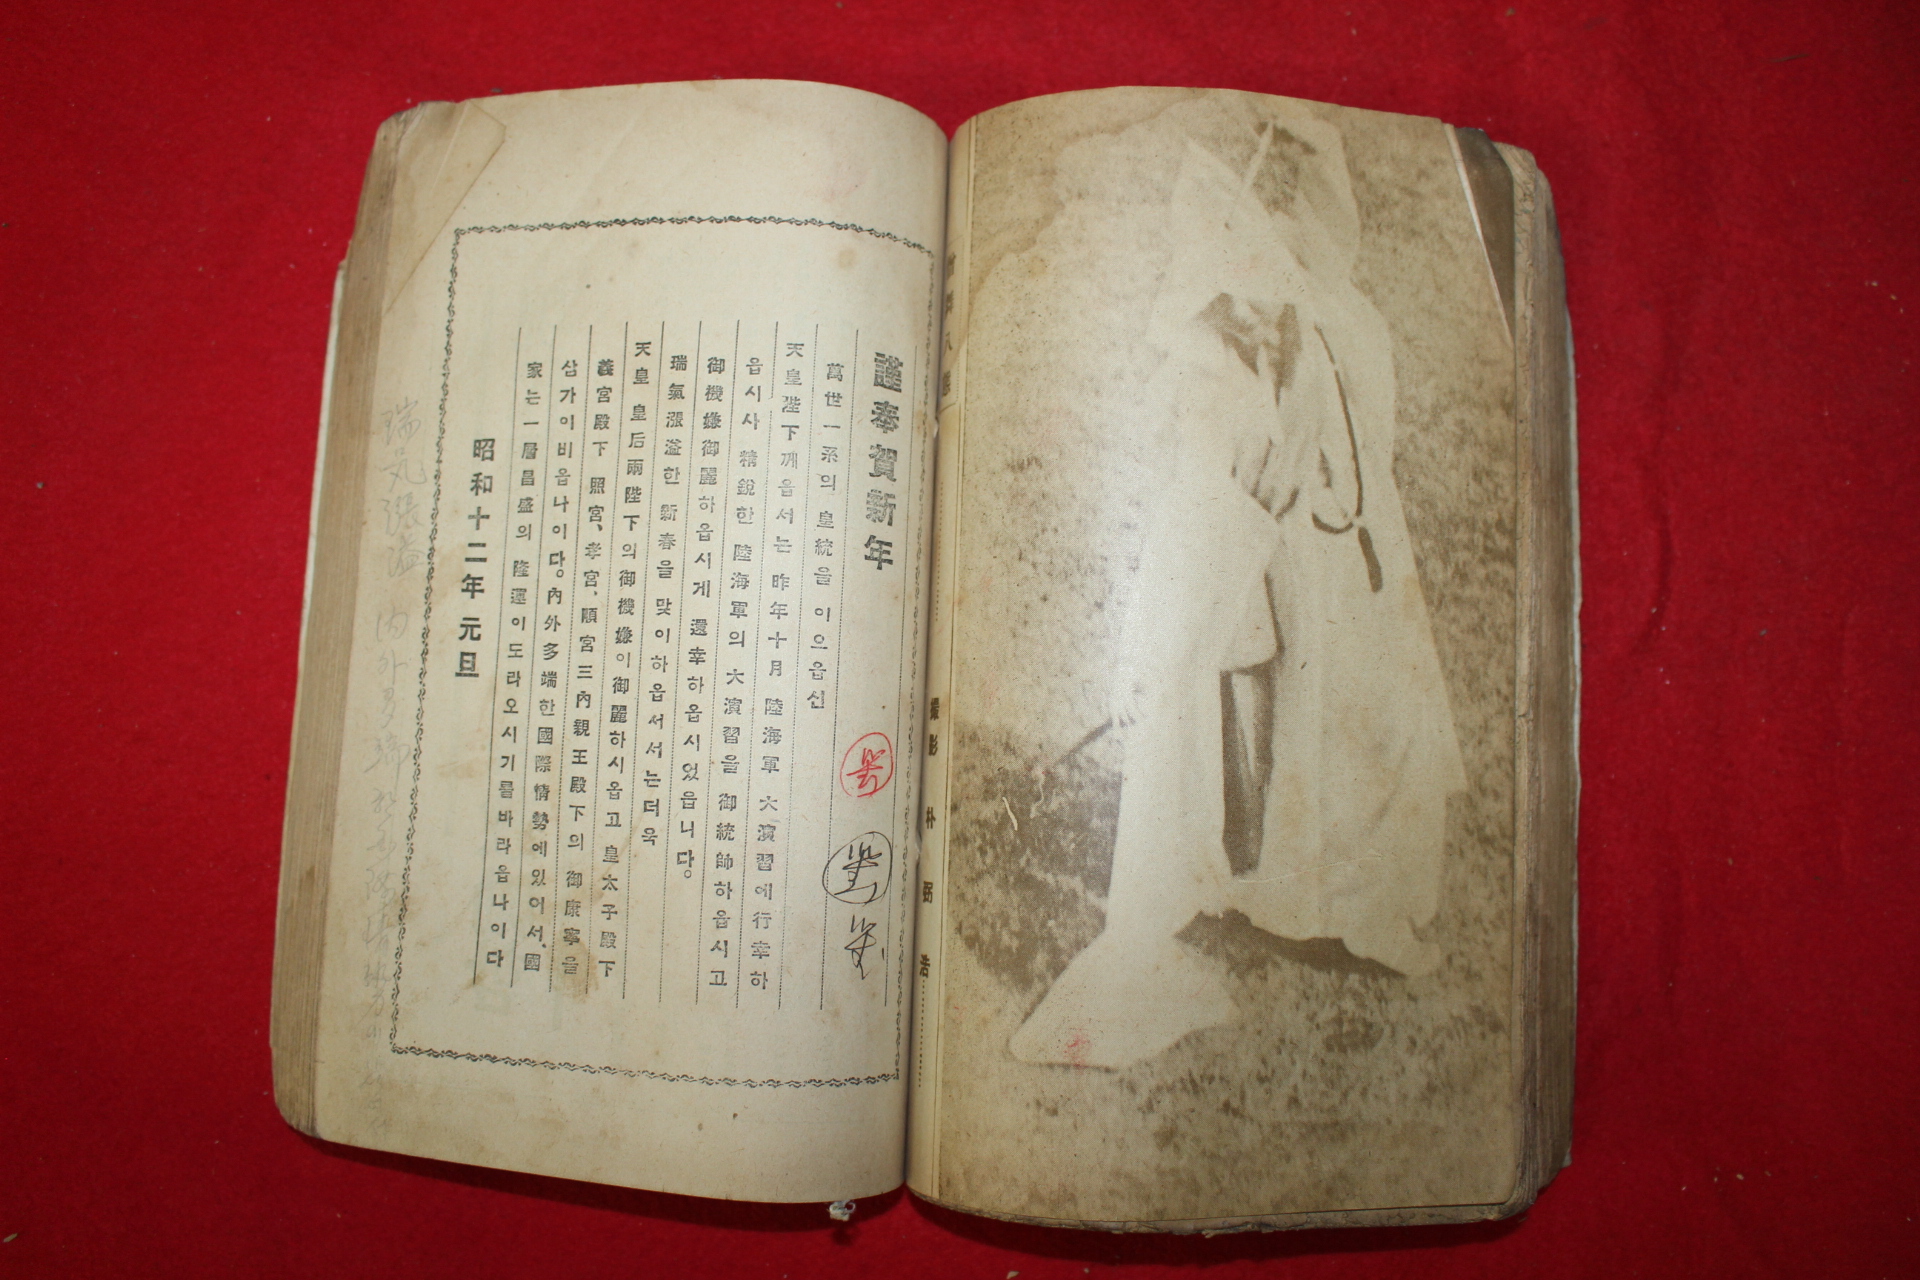 謹奉賀新年
萬世一系의 皇統을 이으옵신
天皇陛下께옵서는 昨年十月 陸海軍 大演習에行幸하
옵시사 精銳한 陸海軍의 大演習을 御統帥하옵시고
御機嫌御麗하옵시게 還幸하옵시었읍니당
瑞氣漲溢한 新春을 맞이하옵서서는더욱
天皇 皇后兩陛下의御機嫌이御麗하시옵고 皇太子殿下
義宮殿下 照宮、孝宮、順宮三內親王殿下의 御康寧을
삼가이비옵나이다。內外多端한國際情勢에있어서、國
家는一層昌盛의 隆運이도라오시기를바라옵나이다
昭和十二年元旦
瑞気漲溢 內外多端한
撮影 朴弼浩